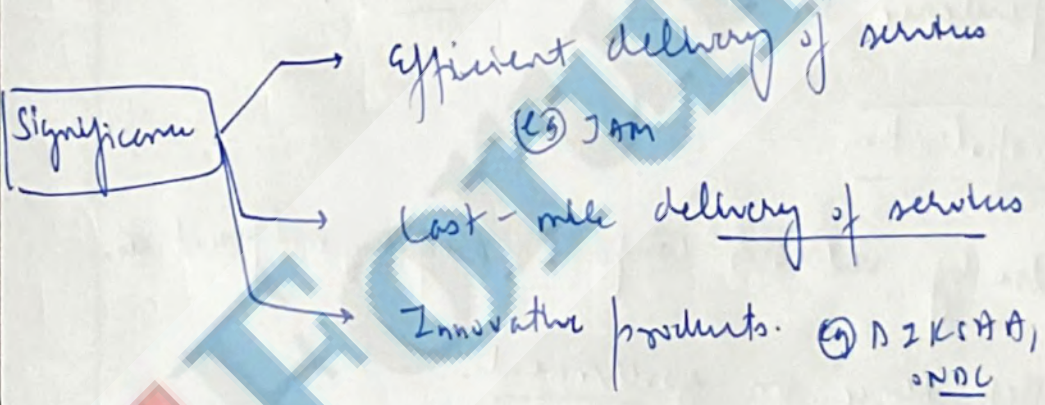 Significance
Efficient delivery of services
eg JAM
Last-mile delivery of services
Innovative products. eg DIKSHA,
ONDC
Forum